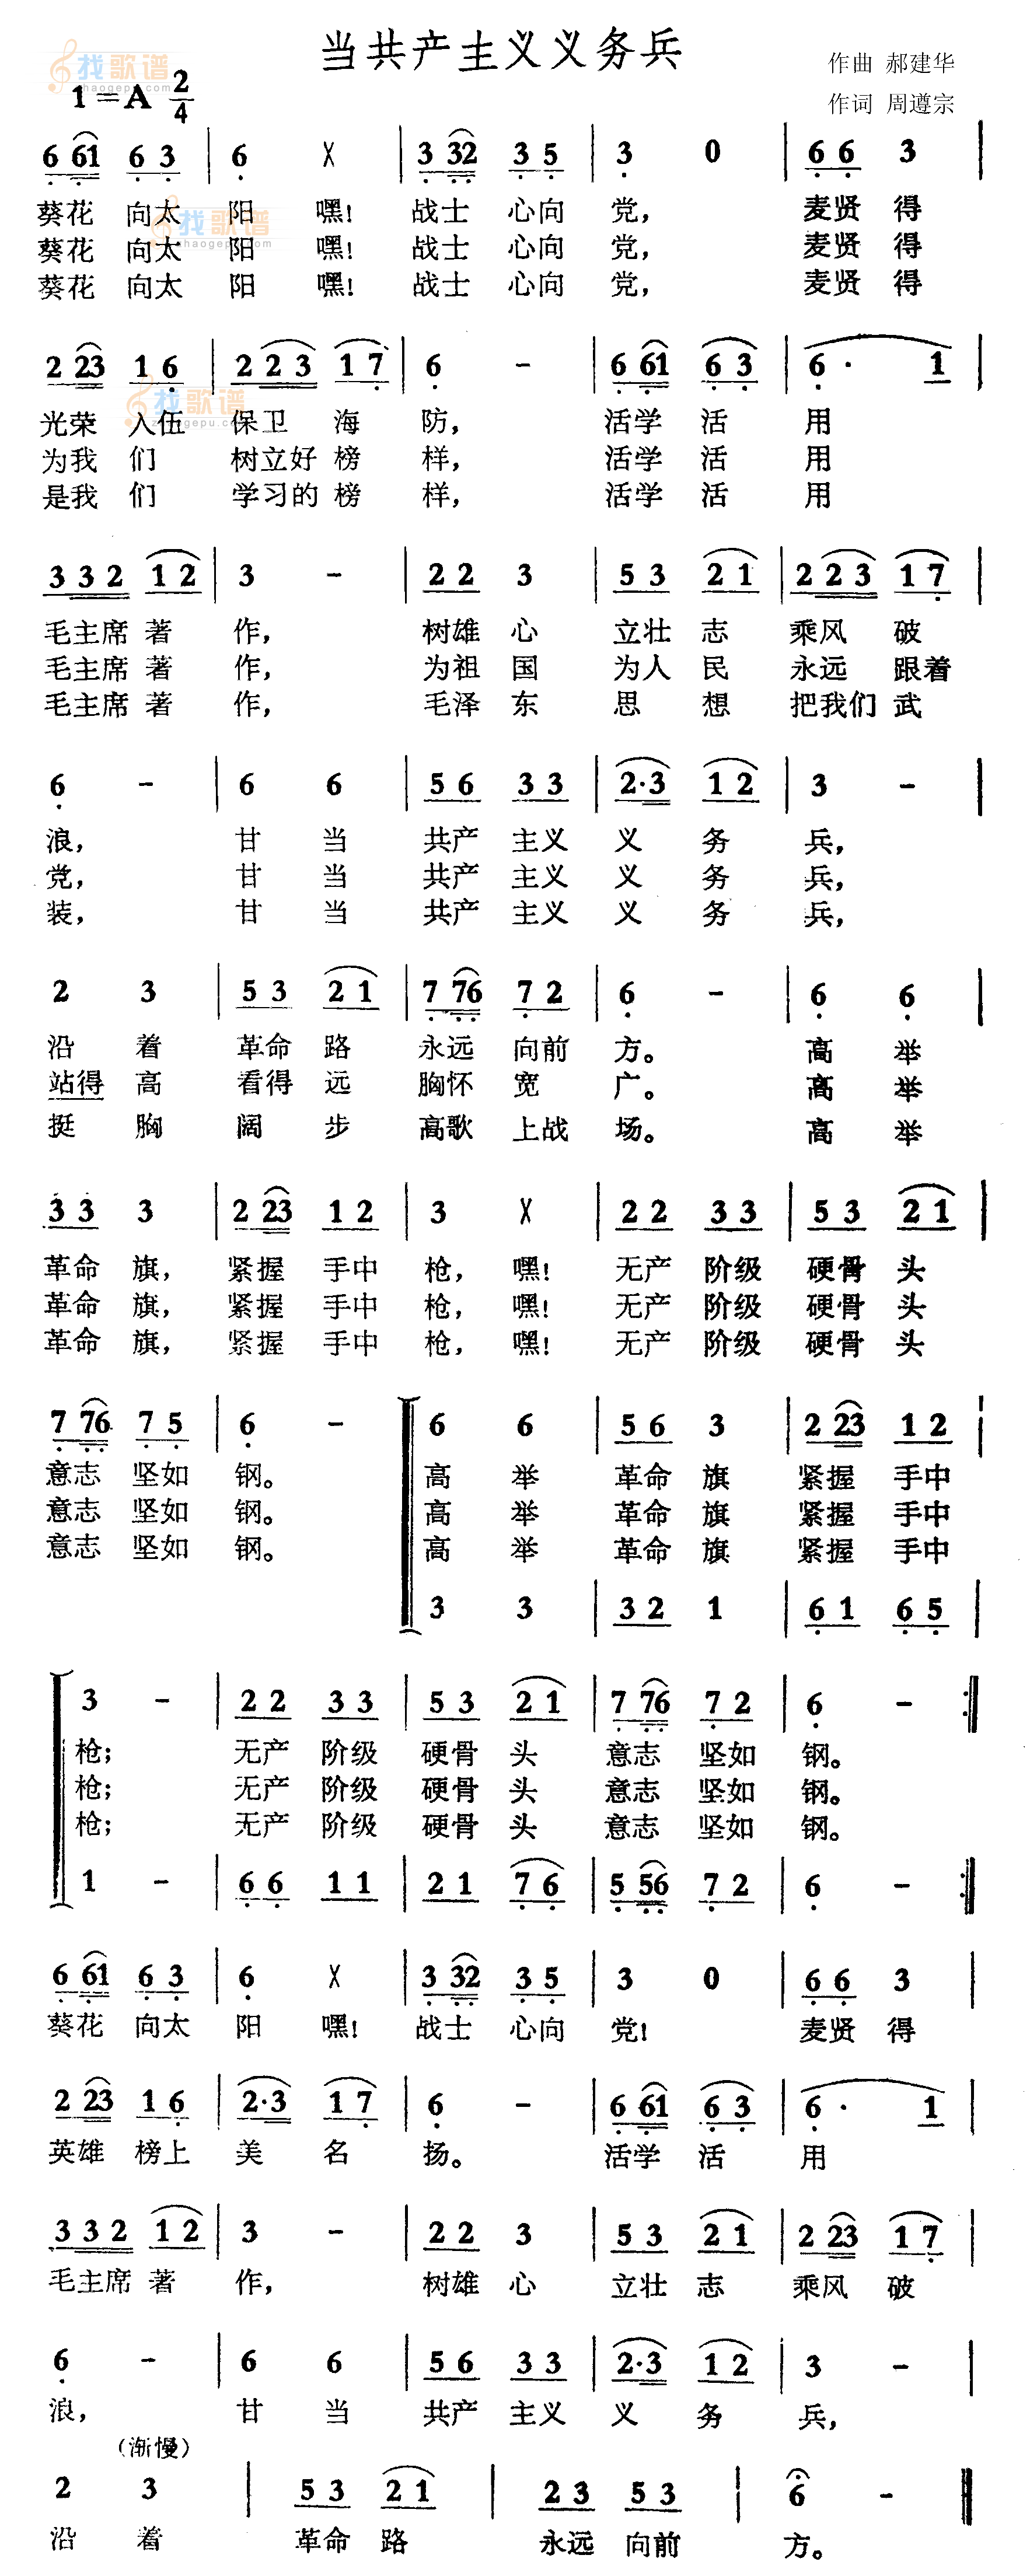 当共产主义义务兵
找歌谱
zhaogepu.com
作曲 郝建华
1=A 2/4
作词 周遵宗
6 61 6 3 | 6 X | 3 32 3 5 | 3 0 | 6 6 3 |
葵花 向太 阳 嘿! 战士 心向 党, 麦贤 得
葵花 向太 阳 嘿! 战士 心向 党, 麦贤 得
葵花 向太 阳 嘿! 战士 心向 党, 麦贤 得
找歌谱
zhaogepu.com
2 23 1 6 | 2 2 3 1 7 | 6 - | 6 61 6 3 | 6 · 1 |
光荣 入伍 保卫 海 防, 活学 活 用
为我 们 树立好 榜 样, 活学 活 用
是我 们 学习的 榜 样, 活学 活 用
找歌谱
zhaogepu.com
3 3 2 1 2 | 3 - | 2 2 3 | 5 3 2 1 | 2 2 3 1 7 |
毛主席 著 作, 树雄 心 立壮 志 乘风 破
毛主席 著 作, 为祖 国 为人 民 永远 跟着
毛主席 著 作, 毛泽 东 思 想 把我们 武
6 - | 6 6 | 5 6 3 3 | 2·3 1 2 | 3 - |
浪, 甘 当 共产 主义 义 务 兵,
党, 甘 当 共产 主义 义 务 兵,
装, 甘 当 共产 主义 义 务 兵,
2 3 | 5 3 2 1 | 7 76 7 2 | 6 - | 6 6 |
沿 着 革命 路 永远 向前 方。 高 举
站得 高 看得 远 胸怀 宽 广。 高 举
挺 胸 阔 步 高歌 上战 场。 高 举
3 3 3 | 2 23 1 2 | 3 X | 2 2 3 3 | 5 3 2 1 |
革命 旗, 紧握 手中 枪, 嘿! 无产 阶级 硬骨 头
革命 旗, 紧握 手中 枪, 嘿! 无产 阶级 硬骨 头
革命 旗, 紧握 手中 枪, 嘿! 无产 阶级 硬骨 头
7 76 7 5 | 6 - | 6 6 | 5 6 3 | 2 23 1 2 |
意志 坚如 钢。 高 举 革命 旗 紧握 手中
意志 坚如 钢。 高 举 革命 旗 紧握 手中
意志 坚如 钢。 高 举 革命 旗 紧握 手中
3 3 | 3 2 1 | 6 1 6 5 |
3 - | 2 2 3 3 | 5 3 2 1 | 7 76 7 2 | 6 - :|
枪; 无产 阶级 硬骨 头 意志 坚如 钢。
枪; 无产 阶级 硬骨 头 意志 坚如 钢。
枪; 无产 阶级 硬骨 头 意志 坚如 钢。
1 - | 6 6 1 1 | 2 1 7 6 | 5 56 7 2 | 6 - :|
6 61 6 3 | 6 X | 3 32 3 5 | 3 0 | 6 6 3 |
葵花 向太 阳 嘿! 战士 心向 党! 麦贤 得
2 23 1 6 | 2·3 1 7 | 6 - | 6 61 6 3 | 6 · 1 |
英雄 榜上 美 名 扬。 活学 活 用
3 3 2 1 2 | 3 - | 2 2 3 | 5 3 2 1 | 2 23 1 7 |
毛主席 著 作, 树雄 心 立壮 志 乘风 破
6 - | 6 6 | 5 6 3 3 | 2·3 1 2 | 3 - |
浪, 甘 当 共产 主义 义 务 兵,
(渐慢)
2 3 | 5 3 2 1 | 2 3 5 3 | 6 - ‖
沿 着 革命 路 永远 向前 方。